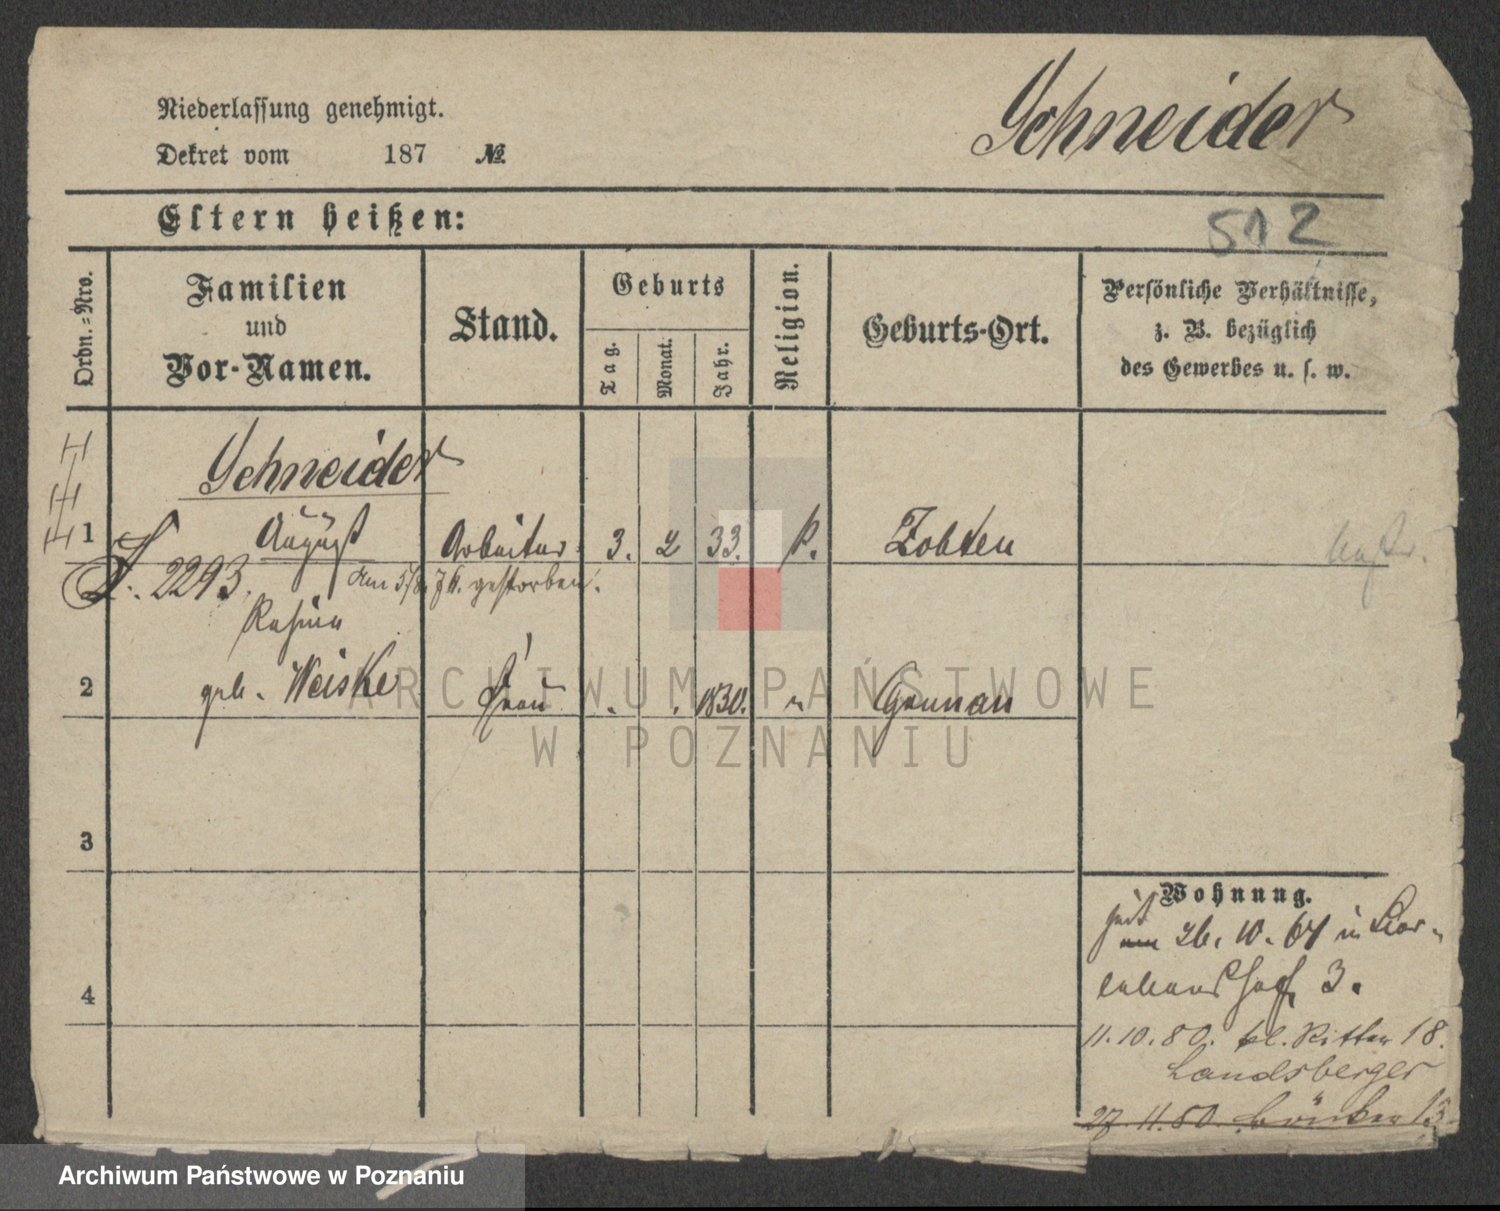 Niederlassung genehmigt.
Dekret vom 187 №
Schneider
Eltern heißen:
512
Ordn.=Nro.
Familien
und
Vor-Namen.
Stand.
Geburts
Tag.
Monat.
Jahr.
Religion.
Geburts-Ort.
Persönliche Verhältnisse,
z. B. bezüglich
des Gewerbes u. s. w.
Schneider
1 August Arbeiter 3. 2 33. k. Zobten
2293. gestorben.
Rosina
2 geb. Weiske Frau 1830. "
3
4
Wohnung.
26. 10. 67 in
3.
11. 10. 80. kl. Ritter 18.
Landsberger
27. 11. 80. 13
ARCHIWUM PAŃSTWOWE
W POZNANIU
Archiwum Państwowe w Poznaniu